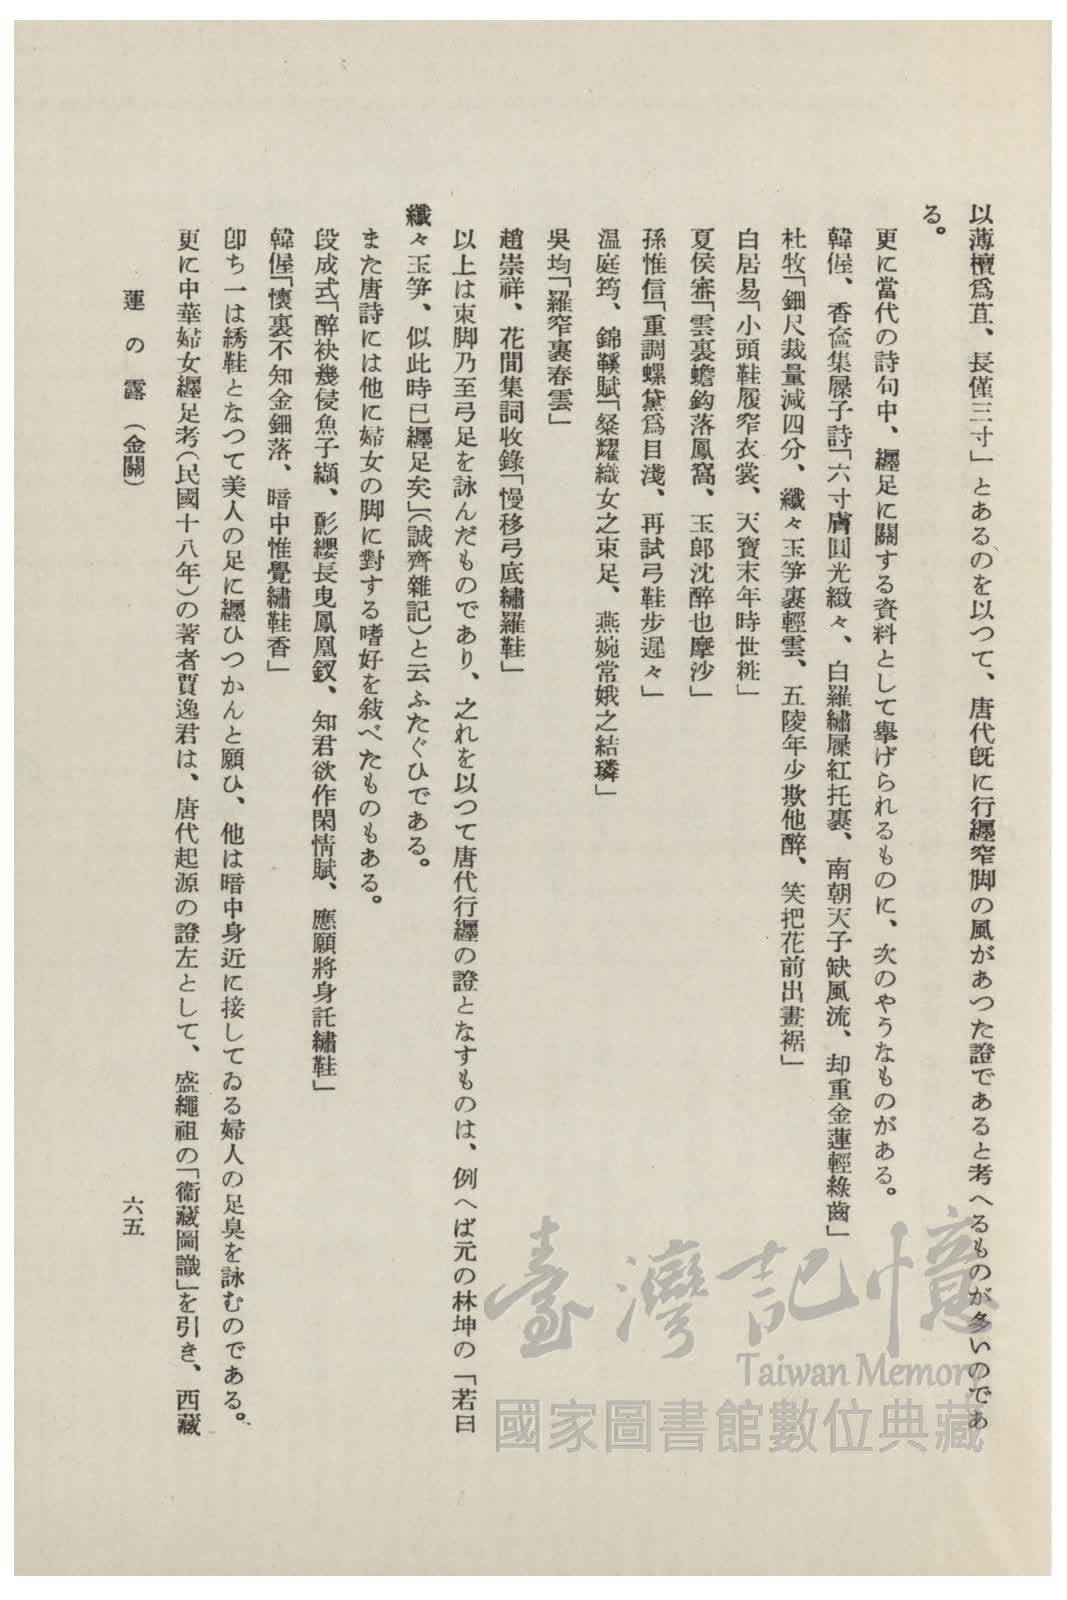 以薄檀爲苴、長僅三寸」とあるのを以つて、唐代旣に行纒窄脚の風があつた證であると考へるものが多いのであ
る。
更に當代の詩句中、纒足に關する資料として擧げられるものに、次のやうなものがある。
韓偓、香奩集屧子詩「六寸膚圓光緻々、白羅繡屧紅托裏、南朝天子缺風流、却重金蓮輕綠齒」
杜牧「鈿尺裁量減四分、纖々玉笋裹輕雲、五陵年少欺他醉、笑把花前出畫裾」
白居易「小頭鞋履窄衣裳、天寶末年時世粧」
夏侯審「雲裏蟾鈎落鳳窩、玉郎沈醉也摩沙」
孫惟信「重調螺黛爲目淺、再試弓鞋步遲々」
温庭筠、錦鞵賦「粲耀織女之束足、燕婉常娥之結璘」
吳均「羅窄裹春雲」
趙崇祥、花間集詞收錄「慢移弓底繡羅鞋」
以上は束脚乃至弓足を詠んだものであり、之れを以つて唐代行纒の證となすものは、例へば元の林坤の「若曰
纖々玉笋、似此時已纒足矣」（誠齊雜記）と云ふたぐひである。
また唐詩には他に婦女の脚に對する嗜好を敍べたものもある。
段成式「醉袂幾侵魚子纈、影纓長曳鳳凰釵、知君欲作閑情賦、應願將身託繡鞋」
韓偓「懷裏不知金鈿落、暗中惟覺繡鞋香」
卽ち一は綉鞋となつて美人の足に纒ひつかんと願ひ、他は暗中身近に接してゐる婦人の足臭を詠むのである。
更に中華婦女纒足考（民國十八年）の著者賈逸君は、唐代起源の證左として、盛繩祖の「衞藏圖識」を引き、西藏
蓮の露（金關）
六五
臺灣記憶
Taiwan Memory
國家圖書館數位典藏